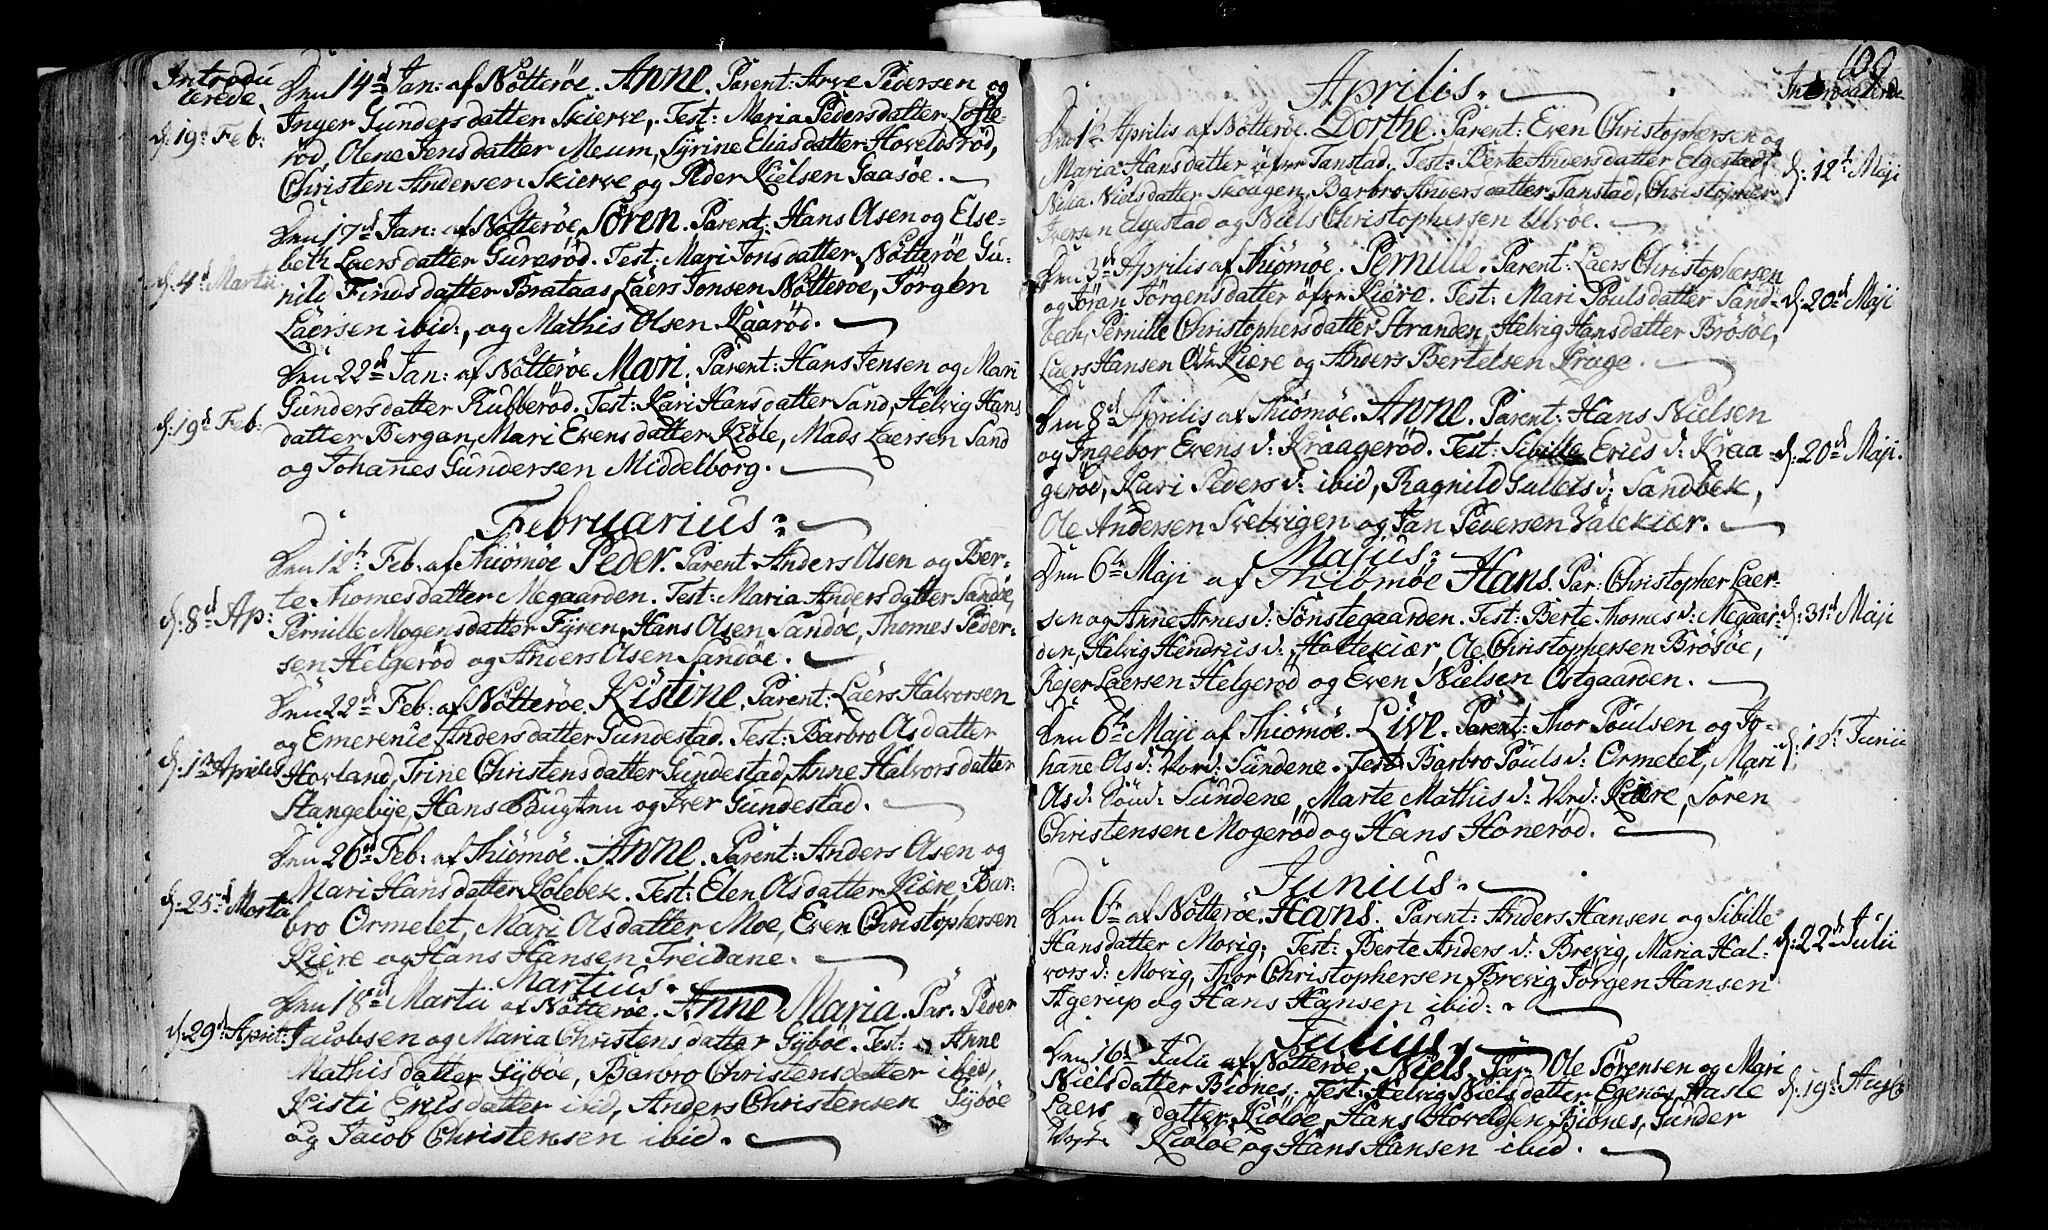 Introdu
cerede
Den 14d Jan: af Nötteröe. Anne. Parent: Arve Pedersen og
d: 19d Feb:
Inger Gundersdatter Skierve, Test: Maria Pedersdatter Lofte-
röd, Olene Jensdatter Meum, Syrine Eliasdatter Hovelsröd,
Christen Andersen Skierve og Peder Nielsen Gaasöe.
Den 17d Jan: af Nötteröe Sören. Parent: Hans Olsen og Else-
beth Laersdatter Gureröd. Test: Mari Jonsdatter Nötteröe Gu-
d. 4d Martii
nild Findsdatter Brataas, Laers Jonsen Nötteröe, Jörgen
Laersen ibid:, og Mathis Olsen Kaaröd.
Den 22d Jan: af Nötteröe Mari. Parent: Hans Jensen og Mari
d: 19d Feb:
Gundersdatter Rubberöd. Test: Kari Hansdatter Sand, Helvig Hans
datter Bergan, Mari Evensdatter Kiöle, Mads Laersen Sand
og Johañes Gundersen Middelborg.
Februarius:
Den 12t Feb. af Thiömöe Peder. Parent Anders Olsen og Ber-
te Thomesdatter Megaarden. Test: Maria Andersdatter Sandöe,
d: 8d Ap:
Pernille Mogensdatter Fÿren, Hans Olsen Sandöe, Thomes Peder-
sen Helgeröd og Anders Olsen Sandöe.
Den 22d Feb: af Nötteröe. Kistine. Parent: Laers Halvorsen
og Emerence Andersdatter Gundestad. Test: Barbro Olsdatter
d: 1te Aprilis
Hovland, Trine Christensdatter Gundestad, Anne Halvorsdatter
Stangebÿe, Hans Baugten og Iver Gundestad.
Den 26d Feb: af Thiömöe. Anne. Parent: Anders Olsen og
d: 25d Martii
Mari Hansdatter Kolebek. Test: Elen Olsdatter Kiære, Bar-
bro Ormelet, Mari Olsdatter Moe, Even Christophersen
Kiere og Hans Hansen Treidane.
Martius.
Den 18d Martii af Nötteröe. Anne Maria. Par. Peder
d: 29d April:
Jacobsen og Maria Christensdatter Gÿböe. Test: Anne
Mathisdatter Gÿböe, Barbro Christensdatter ibid,
Kisti Ericsdatter ibid, Anders Christensen Gÿböe
og Jacob Christensen ibid.
109
Introducerede
Aprilis.
Den 1te Aprilis af Nötteröe. Dorthe. Parent: Even Christophersen og
Maria Hansdatter öfre Tanstad. Test: Berte Andersdatter Elgestad,
d: 12t Maji
Nilia Nielsdatter Skougen, Barbro Andersdatter Tanstad, Christopher
Iversen Elgestad og Niels Christophersen Ulvöe.
Den 3d Aprilis af Thiömöe. Pernille. Parent: Laers Christophersen
og Jöran Jörgensdatter öfre Kiære. Test: Mari Poulsdatter Sand-
d: 20d Maji
bech, Pernille Christophersdatter Stranden, Helvig Hansdatter Brösöe,
Laers Hansen Kiære og Anders Bertelsen Krage.
Den 8d Aprilis af Thiömöe. Anne. Parent: Hans Nielsen
og Ingebor Evens d: Kraageröd. Test: Sibille Erics d: Kraa-
d: 20d Maji.
geröd, Kari Peders d: ibid, Ragnild Gullets d: Sandbek,
Ole Andersen Svelvigen og Jan Pedersen Valekiær.
Majus:
Den 6te Maji af Thiömöe Hans. Par: Christopher Laer-
sen og Anne Arnes d: Sönstegaarden. Test: Berte Thomes d: Megaar-
d: 31d Maji
den, Helvig Hendrics d: Holtekiær, Ole Christophersen Brösöe,
Rejer Laersen Helgeröd og Even Nielsen Ostgaarden.
Den 6te Maji af Thiömöe. Live. Parent: Thor Poulsen og Jo-
d: 12t Junii
hañe Ols d: Nord: Sundene. Test Barbro Pouls d: Ormelet, Mari
Ols d: Söud: Sundene, Marte Mathis d: Nrd: Kiære, Sören
Christensen Mogeröd og Hans Honeröd.
Junius.
Den 6te af Nötteröe. Hans. Parent: Anders Hansen og Sibille
Hansdatter Movig; Test: Berte Anders d: Brevig, Maria Hal-
d: 22d Julii
vors d: Movig, Thor Christophersen Brevig, Jörgen Hansen
Agerup og Hans Hansen ibid:
Julius.
Den 16d Julii af Nötteröe, Niels. Par: Ole Sörensen og Mari
Nielsdatter Biönes. Test: Helvig Nielsdatter Egenes, Aasle
d: 19d Aug
Laers datter Kiölöe, Hans Hovelsen Biönes, Gunder
Kiölöe og Hans Hansen ibid.